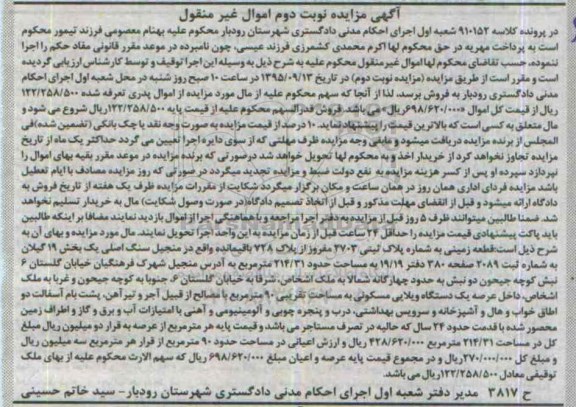 آگهی مزایده نوبت دوم اموال غیر منقول
در پرونده کلاسه ۹۱۰۱۵۲ شعبه اول اجرای احکام مدنی دادگستری شهرستان رودبار محکوم علیه بهنام معصومی فرزند تیمور محکوم
است به پرداخت مهریه در حق محکوم لها اکرم محمدی کشمرزی فرزند عیسی، چون نامبرده در موعد مقرر قانونی مفاد حکم را اجرا
ننموده، حسب تقاضای محکوم لها اموال غیر منقول محکوم علیه به شرح ذیل به وسیله این اجرا توقیف و توسط کارشناس ارزیابی گردیده
است و مقرر است از طریق مزایده (مزایده نوبت دوم) در تاریخ ۱۳۹۵/۰۹/۱۳ در ساعت ۱۰ صبح روز شنبه در محل شعبه اول اجرای احکام
مدنی دادگستری رودبار به فروش برسد. لذا از آنجا که سهم محکوم علیه از مال مورد مزایده از اموال پدری تعرفه شده ۱۲۲/۲۵۸/۵۰۰
ریال از قیمت کل اموال ۶۹۸/۶۲۰/۰۰۰ ریال می باشد. فروش قدرالسهم محکوم علیه از قیمت پایه ۱۲۲/۲۵۸/۵۰۰ ریال شروع می شود و
مال متعلق به کسی است که بالاترین قیمت را پیشنهاد نماید. ۱۰ درصد از قیمت مزایده به صورت وجه نقد یا چک بانکی (تضمین شده) فی
المجلس از برنده مزایده دریافت میشود و مابقی وجه مزایده ظرف مهلتی که از سوی دایره اجرا تعیین می گردد حداکثر یک ماه از تاریخ
مزایده تجاوز نخواهد کرد از خریدار اخذ و به محکوم لها تحویل خواهد شد درصورتی که برنده مزایده در موعد مقرر بقیه بهای اموال را
نپردازد سپرده او پس از کسر هزینه مزایده به نفع دولت ضبط و مزایده تجدید میگردد در صورتی که روز مزایده مصادف با ایام تعطیل
باشد مزایده فردای اداری همان روز در همان ساعت و مکان برگزار میگردد شکایت از مقررات مزایده ظرف یک هفته از تاریخ فروش به
دادگاه ارائه میشود و قبل از انقضای مهلت مذکور و قبل از اتخاذ تصمیم دادگاه (در صورت وصول شکایت) مال به خریدار تسلیم نخواهد
شد. ضمنا طالبین میتوانند ظرف ۵ روز قبل از مزایده به دفتر اجرا مراجعه و با هماهنگی اجرا از اموال بازدید نمایند مضافا بر اینکه طالبین
باید پاکت پیشنهادی قیمت مزایده را حداقل ۲۴ ساعت قبل از زمان مزایده به این واحد اجرا تحویل نمایند. مال مورد مزایده و بهای آن به
شرح ذیل است: قطعه زمینی به شماره پلاک ثبتی ۳۷۰۲ مفروز از پلاک ۷۲۸ باقیمانده واقع در منجیل سنگ اصلی یک بخش ۱۹ گیلان
به شماره ثبت ۲۰۸۹ صفحه ۳۸۰ دفتر ۱۹/۱۹ به مساحت حدود ۲۱۴/۳۱ مترمربع به آدرس منجیل شهرک فرهنگیان خیابان گلستان ۶
نبش کوچه جیحون دو نبش به حدود چهارگانه شمالا به ملک اشخاص، شرقا به خیابان گلستان ۶، جنوبا به کوچه جیحون و غربا به ملک
اشخاص، داخل عرصه یک دستگاه ویلایی مسکونی به مساحت تقریبی ۹۰ مترمربع با مصالح از قبیل آجر و تیرآهن، پشت بام آسفالت دو
اطاق خواب و هال و آشپزخانه و سرویس بهداشتی، درب و پنجره چوبی و آلومینیومی و آهنی با امتیازات آب و برق و گاز و اطراف زمین
محصور شده با قدمت حدود ۲۴ سال که حالیه در تصرف مستاجر می باشد و قیمت پایه هر مترمربع از عرصه به قرار دو میلیون ریال مبلغ
کل در مساحت ۲۱۴/۳۱ مترمربع ۴۲۸/۶۲۰/۰۰۰ ریال و ارزش اعیانی در مساحت حدود ۹۰ مترمربع از قرار هر مترمربع سه میلیون ریال
و مبلغ کل ۲۷۰/۰۰۰/۰۰۰ ریال و در مجموع قیمت پایه عرصه و اعیان مبلغ ۶۹۸/۶۲۰/۰۰۰ ریال که سهم الارث محکوم علیه از بهای ملک
توقیفی معادل ۱۲۲/۲۵۸/۵۰۰ ریال می باشد.
ح ۳۸۱۷ مدیر دفتر شعبه اول اجرای احکام مدنی دادگستری شهرستان رودبار- سید خاتم حسینی